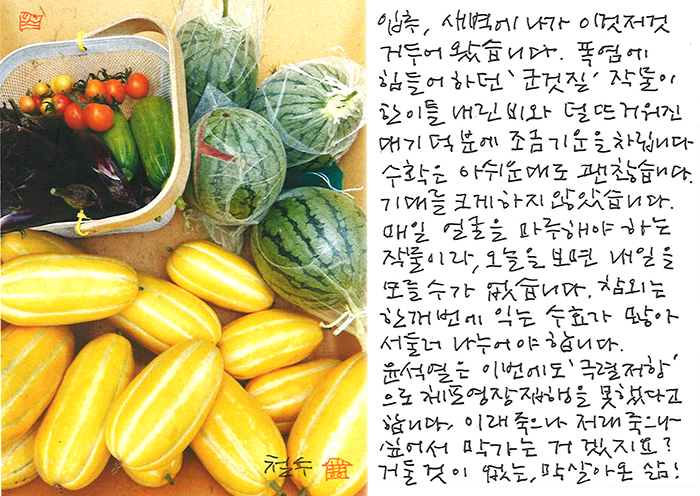 입추, 새벽에 나가 이것저것
거두어 왔습니다. 폭염에
힘들어 하던 '군것질' 작물이
한이틀 내린 비와 덜 뜨거워진
대기 덕분에 조금 기운을 차립니다
수확은 아쉬운대로 괜찮습니다.
기대를 크게 하지 않았습니다.
매일 얼굴을 마주해야 하는
작물이라, 오늘을 보면 내일을
모를 수가 없습니다. 참외는
한꺼번에 익는 수효가 많아
서둘러 나누어야 합니다.
윤석열은 이번에도 '극렬저항'
으로 체포영장 집행을 못했다고
합니다. 이래 죽으나 저래 죽으나
싶어서 막가는 거 겠지요?
거둘 것이 없는, 막 살아온 삶!
철수